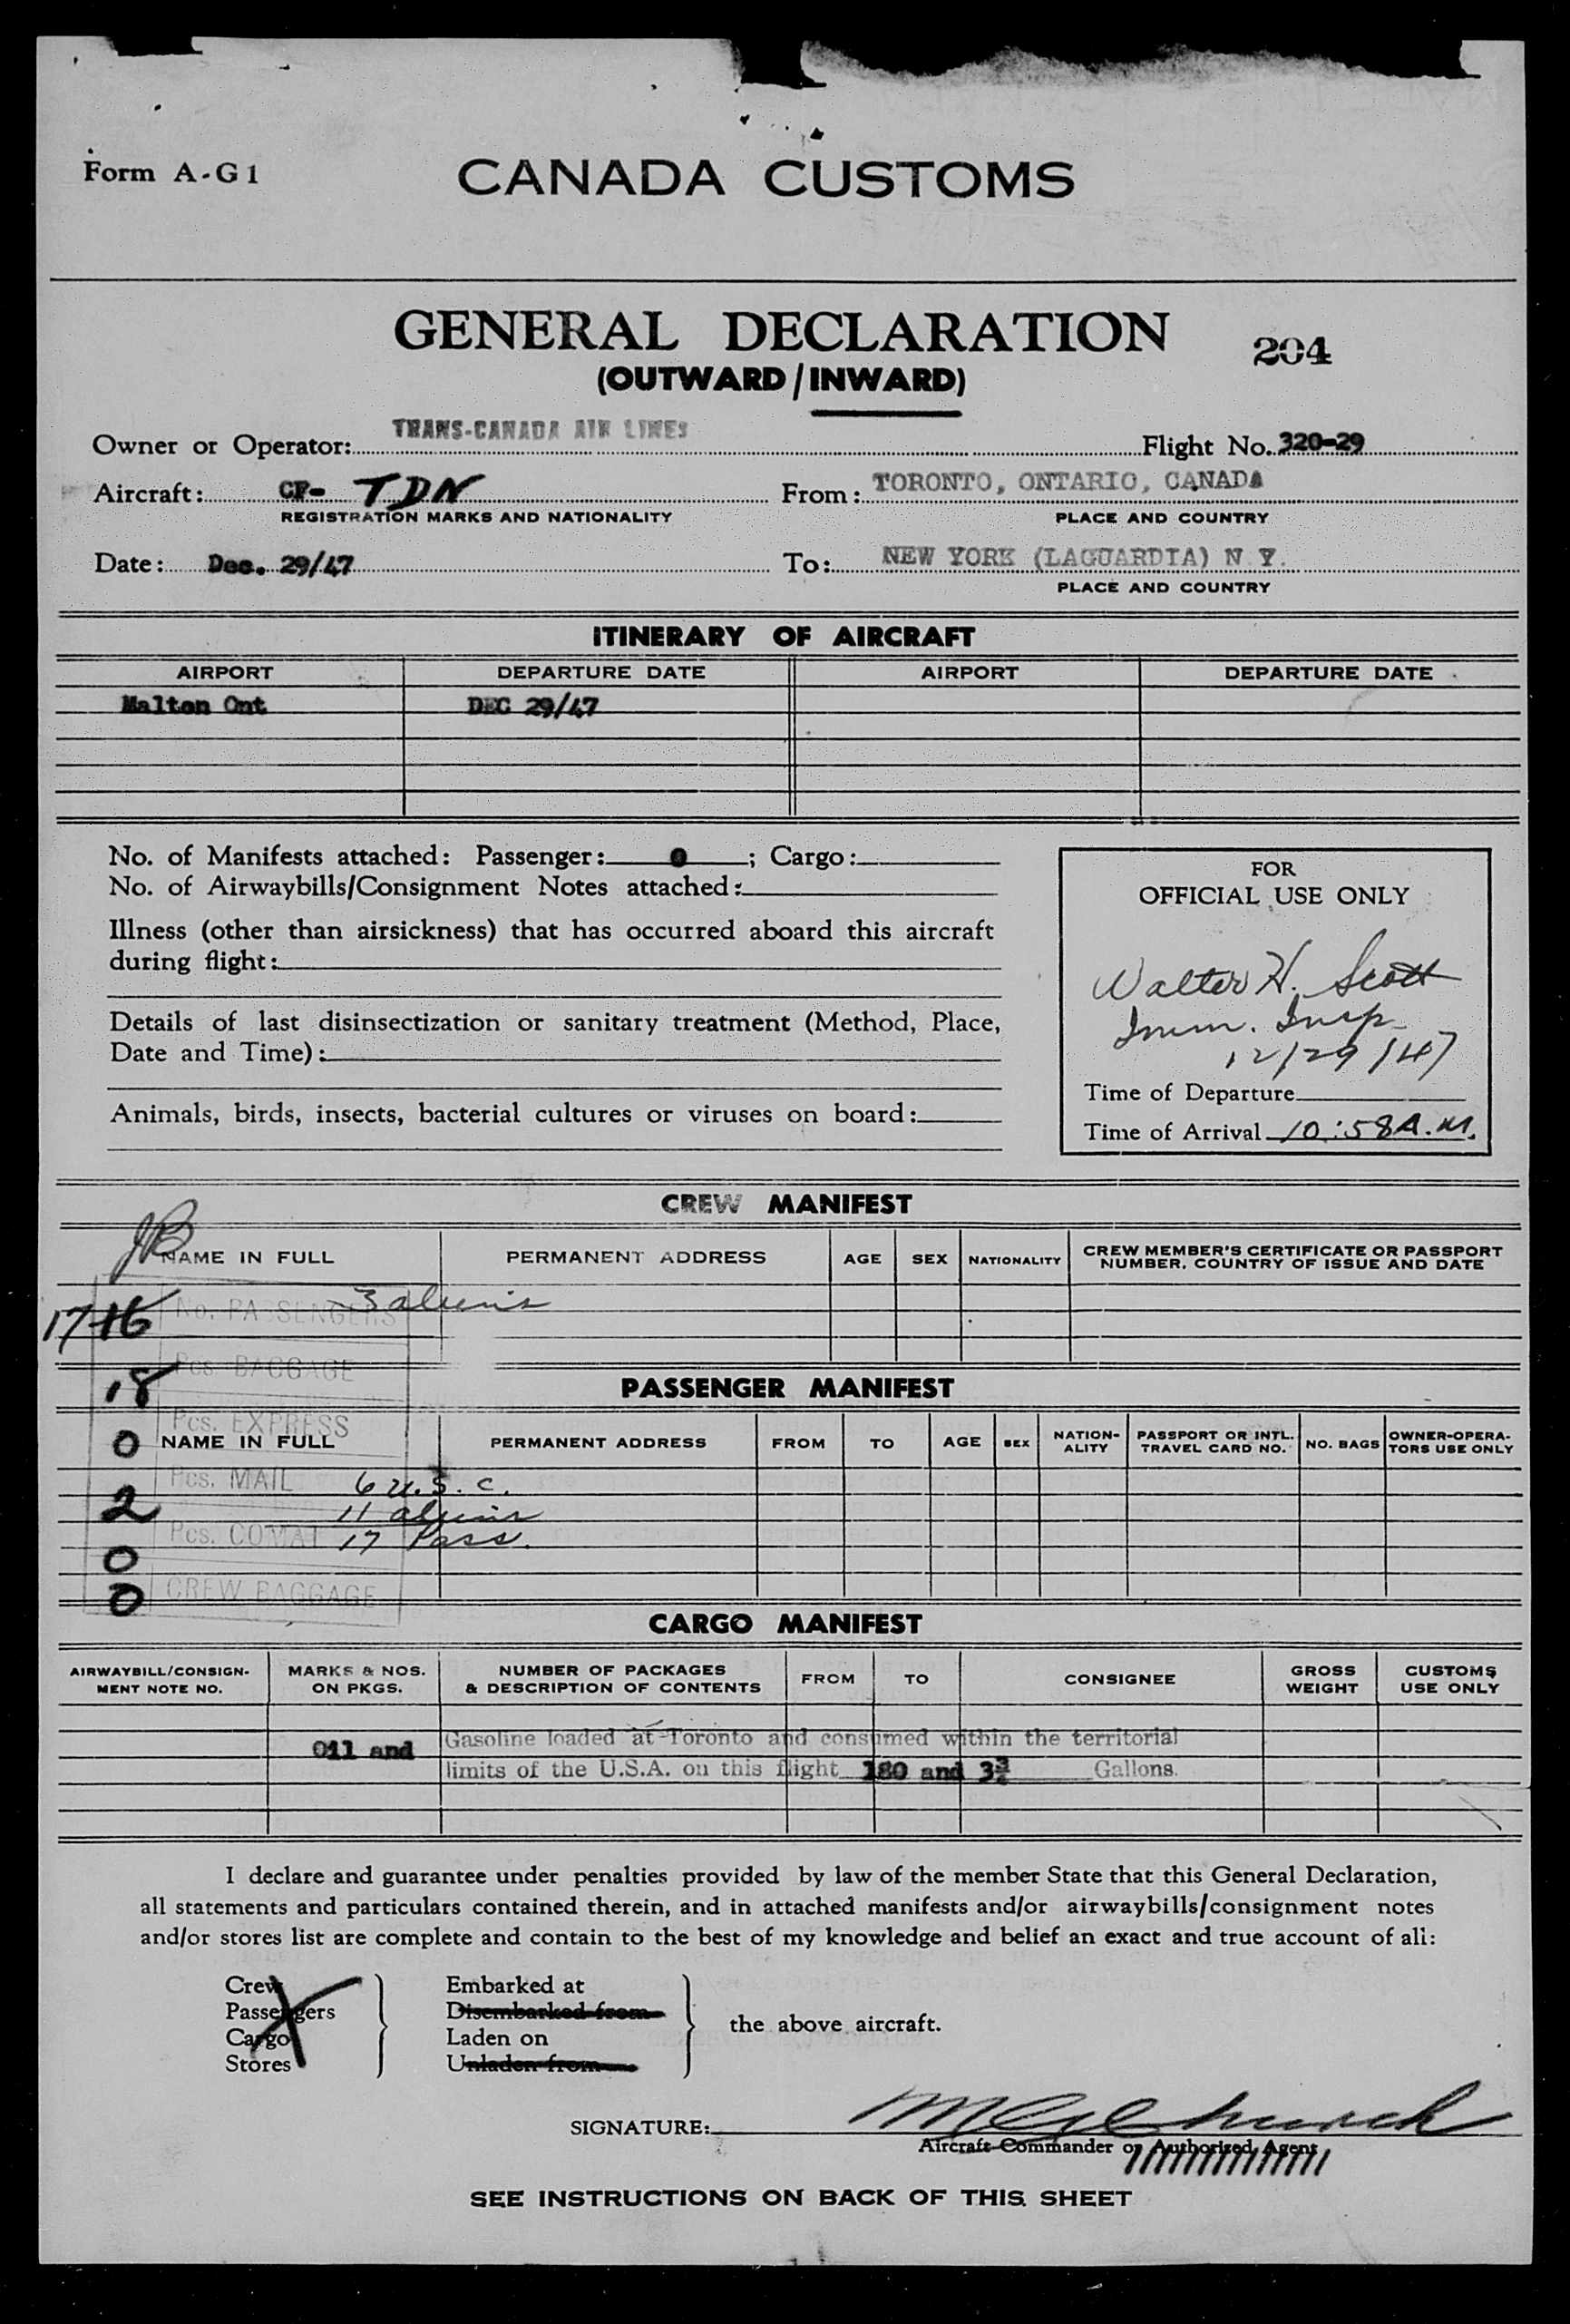 Form A-G1
CANADA CUSTOMS
GENERAL DECLARATION
204
(OUTWARD/INWARD)
Owner or Operator: TRANS-CANADA AIR LINES Flight No. 320-29
Aircraft: CF- TDN From: TORONTO, ONTARIO, CANADA
REGISTRATION MARKS AND NATIONALITY PLACE AND COUNTRY
Date: Dec. 29/47 To: NEW YORK (LAGUARDIA) N Y.
PLACE AND COUNTRY
ITINERARY OF AIRCRAFT
AIRPORT DEPARTURE DATE AIRPORT DEPARTURE DATE
Malton Ont DEC 29/47
No. of Manifests attached: Passenger: 0 ; Cargo:
No. of Airwaybills/Consignment Notes attached:
Illness (other than airsickness) that has occurred aboard this aircraft
during flight:
Details of last disinsectization or sanitary treatment (Method, Place,
Date and Time):
Animals, birds, insects, bacterial cultures or viruses on board:
FOR
OFFICIAL USE ONLY
Walter H. Scott
Imm. Insp.
12/29/47
Time of Departure
Time of Arrival 10:58 A.M.
CREW MANIFEST
JB
NAME IN FULL PERMANENT ADDRESS AGE SEX NATIONALITY CREW MEMBER'S CERTIFICATE OR PASSPORT
NUMBER, COUNTRY OF ISSUE AND DATE
3 aliens
17 16 No. PASSENGERS
18 Pcs. BAGGAGE
PASSENGER MANIFEST
0 Pcs. EXPRESS
NAME IN FULL PERMANENT ADDRESS FROM TO AGE SEX NATION-
ALITY PASSPORT OR INTL.
TRAVEL CARD NO. NO. BAGS OWNER-OPERA-
TORS USE ONLY
2 Pcs. MAIL 6 U.S.C.
11 aliens
0 Pcs. COMAT 17 Pass.
0 CREW BAGGAGE
CARGO MANIFEST
AIRWAYBILL/CONSIGN-
MENT NOTE NO. MARKS & NOS.
ON PKGS. NUMBER OF PACKAGES
& DESCRIPTION OF CONTENTS FROM TO CONSIGNEE GROSS
WEIGHT CUSTOMS
USE ONLY
Oil and Gasoline loaded at Toronto and consumed within the territorial
limits of the U.S.A. on this flight 180 and Gallons.
I declare and guarantee under penalties provided by law of the member State that this General Declaration,
all statements and particulars contained therein, and in attached manifests and/or airwaybills/consignment notes
and/or stores list are complete and contain to the best of my knowledge and belief an exact and true account of all:
Crew Embarked at
Passengers Disembarked from
Cargo Laden on
Stores Unladen from
the above aircraft.
SIGNATURE:
Aircraft Commander or Authorized Agent
SEE INSTRUCTIONS ON BACK OF THIS SHEET